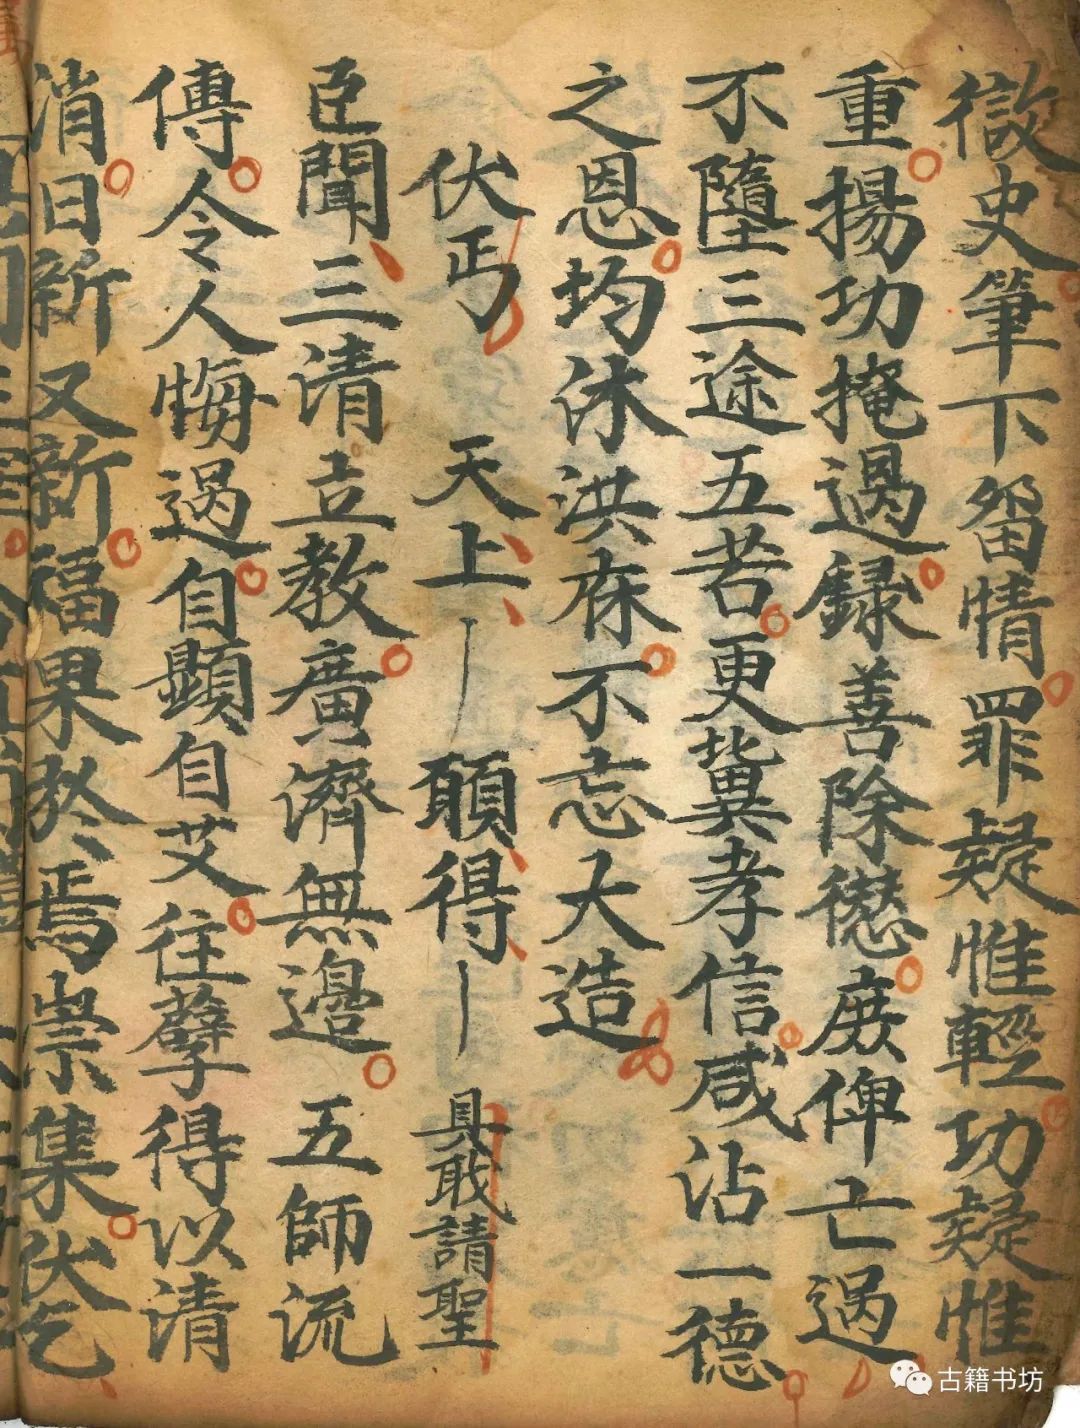 徵史筆下留情罪疑惟輕功疑惟
重揚功掩過錄善除愆庻俾亡過
不墮三途五苦更兾孝信咸沾一德
之恩均沐洪庥不忘大造
伏丐 天上 願得 具敢請聖
臣聞三清立教廣濟無邉五師流
傳令人悔過自顕自艾往孽得以清
消日新又新福果於焉崇集伏乞
古籍书坊